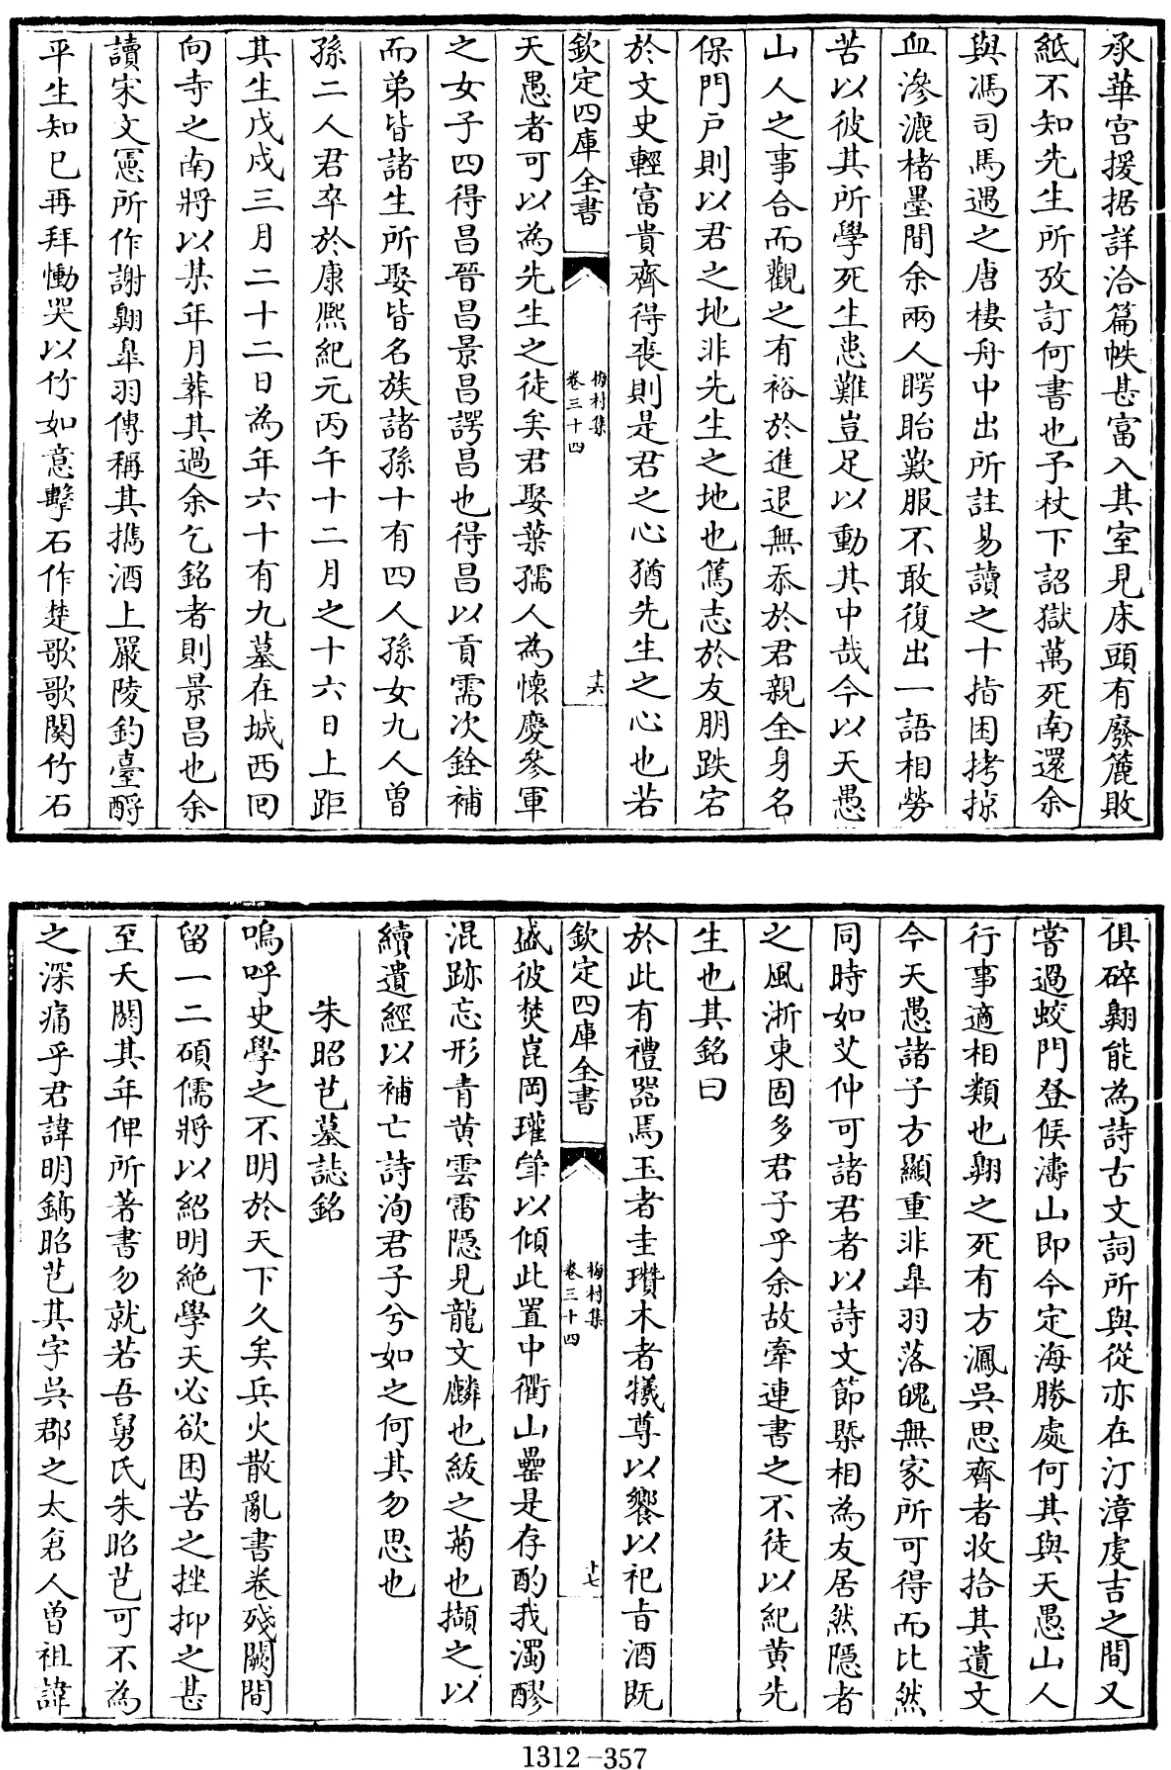 承華宫援据詳洽篇帙甚富入其室見床頭有廢簏敗
紙不知先生所攷訂何書也予杖下詔獄萬死南還余
與馮司馬遇之唐棲舟中出所註易讀之十指困拷掠
血滲漉楮墨間余兩人睜眙歎服不敢復出一語相勞
苦以彼其所學死生患難豈足以動其中哉今以天愚
山人之事合而觀之有裕於進退無忝於君親全身名
保門戸則以君之地非先生之地也篤志於友朋跌宕
於文史輕富貴齊得喪則是君之心猶先生之心也若
欽定四庫全書
梅村集
卷三十四
十六
天愚者可以為先生之徒矣君娶葉孺人為懷慶參軍
之女子四得昌晉昌景昌諤昌也得昌以貢需次銓補
而弟皆諸生所娶皆名族諸孫十有四人孫女九人曾
孫二人君卒於康熙紀元丙午十二月之十六日上距
其生戊戌三月二十二日為年六十有九墓在城西囘
向寺之南將以某年月葬其過余乞銘者則景昌也余
讀宋文憲所作謝翺臯羽傳稱其攜酒上嚴陵釣臺酹
平生知已再拜慟哭以竹如意擊石作楚歌歌闋竹石
俱碎翺能為詩古文詞所與從亦在汀漳虔吉之間又
嘗過蛟門登候濤山即今定海勝處何其與天愚山人
行事適相類也翺之死有方鳳吳思齊者收拾其遺文
今天愚諸子方顯重非臯羽落魄無家所可得而比然
同時如艾仲可諸君者以詩文節槩相為友居然隱者
之風浙東固多君子乎余故牽連書之不徒以紀黄先
生也其銘曰
於此有禮器焉玉者圭瓚木者犧尊以饗以祀旨酒既
欽定四庫全書
梅村集
卷三十四
十七
盛彼焚崑岡瓘斝以傾此置中衢山罍是存酌我濁醪
混跡忘形青黄雲雷隱見龍文麟也紱之菊也擷之以
續遺經以補亡詩洵君子兮如之何其勿思也
朱昭芑墓誌銘
嗚呼史學之不明於天下久矣兵火散亂書卷殘闕間
留一二碩儒將以紹明絶學天必欲困苦之挫抑之甚
至夭閼其年俾所著書勿就若吾舅氏朱昭芑可不為
之深痛乎君諱明鎬昭芑其字吳郡之太倉人曾祖諱
1312-357